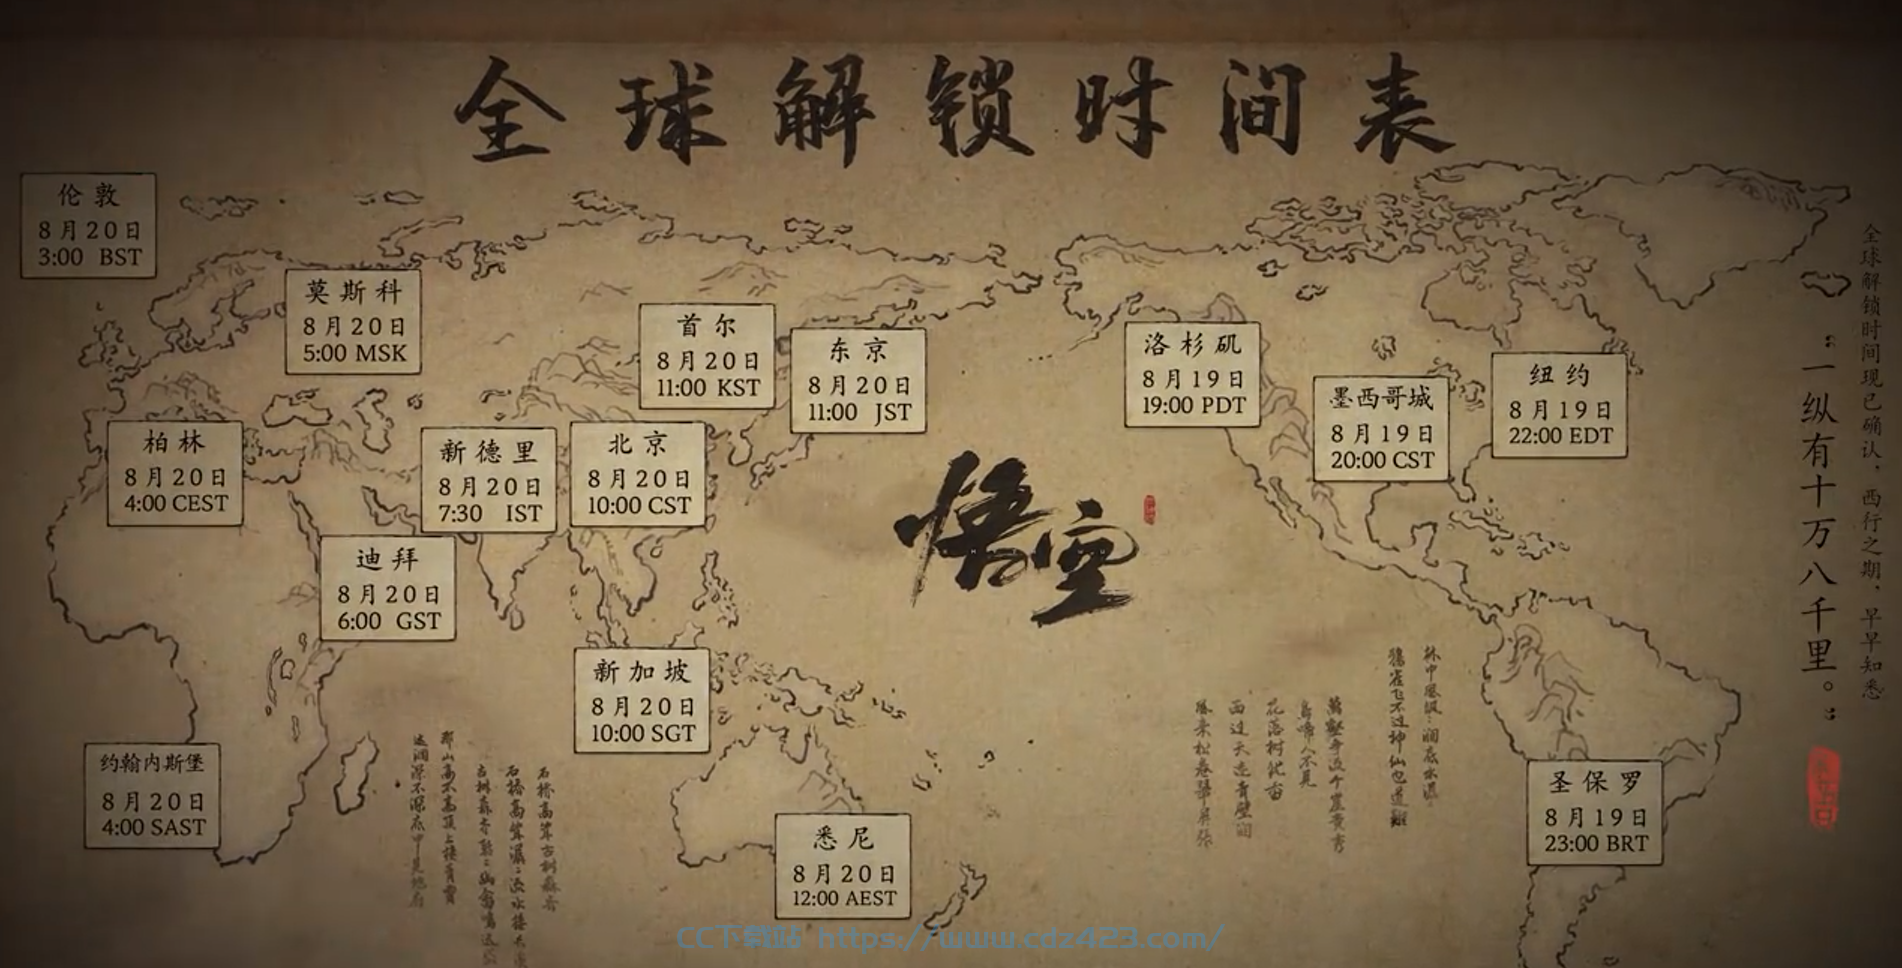 全球解锁时间表
伦敦
8月20日
3:00 BST
莫斯科
8月20日
5:00 MSK
首尔
8月20日
11:00 KST
东京
8月20日
11:00 JST
洛杉矶
8月19日
19:00 PDT
墨西哥城
8月19日
20:00 CST
纽约
8月19日
22:00 EDT
柏林
8月20日
4:00 CEST
新德里
8月20日
7:30 IST
北京
8月20日
10:00 CST
迪拜
8月20日
6:00 GST
悟空
新加坡
8月20日
10:00 SGT
约翰内斯堡
8月20日
4:00 SAST
悉尼
8月20日
12:00 AEST
圣保罗
8月19日
23:00 BRT
全球解锁时间现已确认，西行之期，早早知悉
“一纵有十万八千里。”
CC下载站 https://www.cdz423.com/